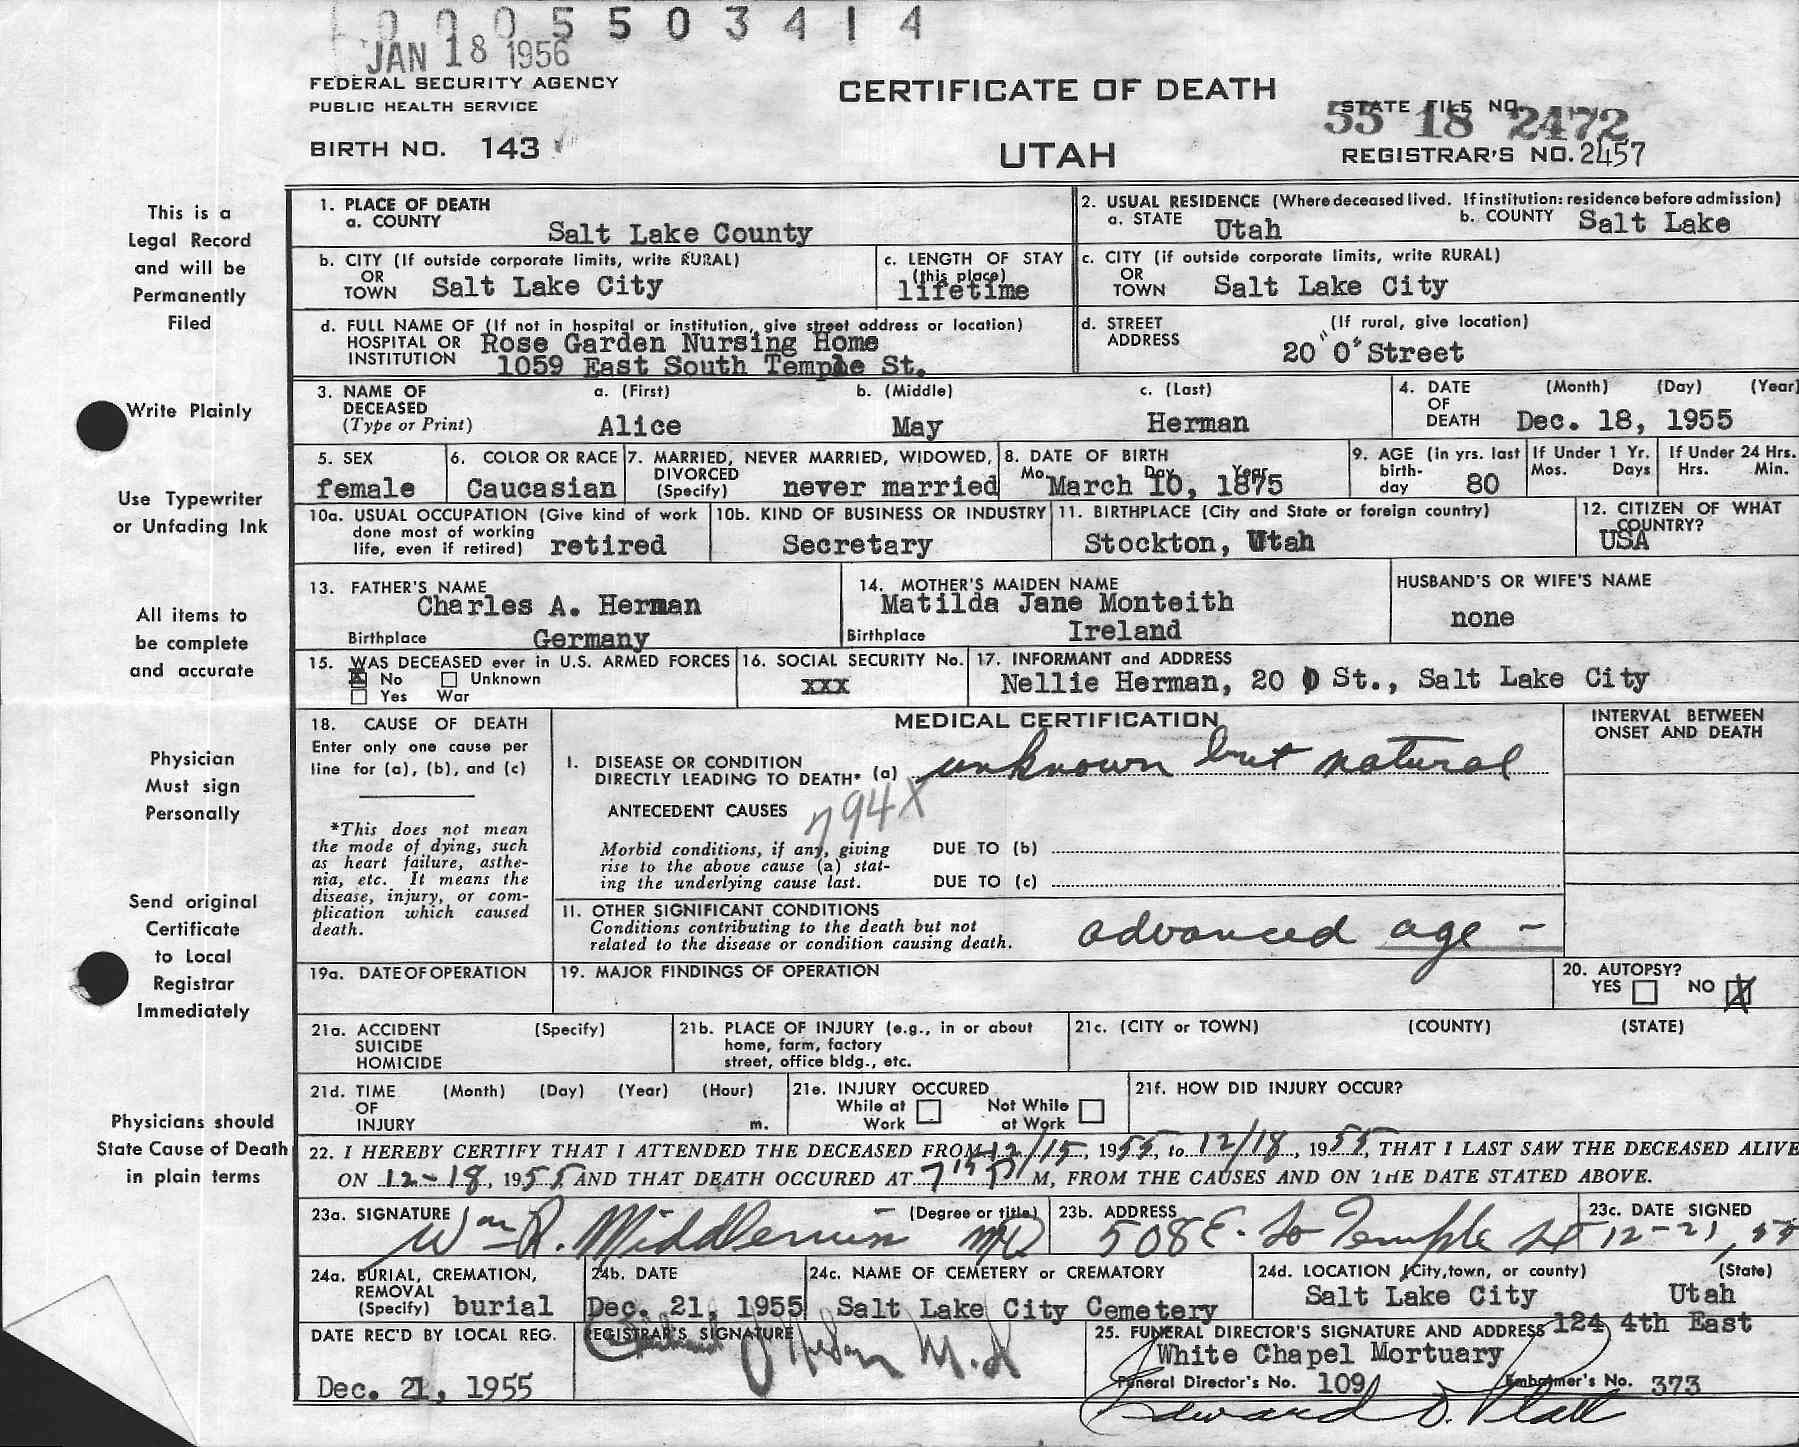 0005503414
JAN 18 1956
FEDERAL SECURITY AGENCY
PUBLIC HEALTH SERVICE
BIRTH NO. 143
CERTIFICATE OF DEATH
UTAH
STATE FILE NO.
55 18 2472
REGISTRAR'S NO. 2457
This is a
Legal Record
and will be
Permanently
Filed
Write Plainly
Use Typewriter
or Unfading Ink
All items to
be complete
and accurate
Physician
Must sign
Personally
Send original
Certificate
to Local
Registrar
Immediately
Physicians should
State Cause of Death
in plain terms
1. PLACE OF DEATH
a. COUNTY
Salt Lake County
2. USUAL RESIDENCE (Where deceased lived. If institution: residence before admission)
a. STATE Utah b. COUNTY Salt Lake
b. CITY (If outside corporate limits, write RURAL)
OR
TOWN Salt Lake City
c. LENGTH OF STAY
(this place)
lifetime
c. CITY (if outside corporate limits, write RURAL)
OR
TOWN Salt Lake City
d. FULL NAME OF (If not in hospital or institution, give street address or location)
HOSPITAL OR Rose Garden Nursing Home
INSTITUTION 1059 East South Temple St.
d. STREET (If rural, give location)
ADDRESS
20 "O" Street
3. NAME OF a. (First) b. (Middle) c. (Last)
DECEASED
(Type or Print) Alice May Herman
4. DATE (Month) (Day) (Year)
OF
DEATH Dec. 18, 1955
5. SEX
female
6. COLOR OR RACE
Caucasian
7. MARRIED, NEVER MARRIED, WIDOWED,
DIVORCED
(Specify) never married
8. DATE OF BIRTH
Mo. Day Year
March 10, 1875
9. AGE (in yrs. last
birth-
day 80
If Under 1 Yr.
Mos. Days
If Under 24 Hrs.
Hrs. Min.
10a. USUAL OCCUPATION (Give kind of work
done most of working
life, even if retired) retired
10b. KIND OF BUSINESS OR INDUSTRY
Secretary
11. BIRTHPLACE (City and State or foreign country)
Stockton, Utah
12. CITIZEN OF WHAT
COUNTRY?
USA
13. FATHER'S NAME
Charles A. Herman
Birthplace Germany
14. MOTHER'S MAIDEN NAME
Matilda Jane Monteith
Birthplace Ireland
HUSBAND'S OR WIFE'S NAME
none
15. WAS DECEASED ever in U.S. ARMED FORCES
X No Unknown
Yes War
16. SOCIAL SECURITY No.
xxx
17. INFORMANT and ADDRESS
Nellie Herman, 20 O St., Salt Lake City
18. CAUSE OF DEATH
Enter only one cause per
line for (a), (b), and (c)
*This does not mean
the mode of dying, such
as heart failure, asthe-
nia, etc. It means the
disease, injury, or com-
plication which caused
death.
MEDICAL CERTIFICATION
INTERVAL BETWEEN
ONSET AND DEATH
I. DISEASE OR CONDITION
DIRECTLY LEADING TO DEATH* (a) unknown but natural
ANTECEDENT CAUSES
794X
Morbid conditions, if any, giving
rise to the above cause (a) stat-
ing the underlying cause last.
DUE TO (b)
DUE TO (c)
II. OTHER SIGNIFICANT CONDITIONS
Conditions contributing to the death but not
related to the disease or condition causing death.
advanced age -
19a. DATE OF OPERATION
19. MAJOR FINDINGS OF OPERATION
20. AUTOPSY?
YES NO X
21a. ACCIDENT (Specify)
SUICIDE
HOMICIDE
21b. PLACE OF INJURY (e.g., in or about
home, farm, factory
street, office bldg., etc.
21c. (CITY or TOWN) (COUNTY) (STATE)
21d. TIME (Month) (Day) (Year) (Hour)
OF
INJURY m.
21e. INJURY OCCURED
While at Work Not While at Work
21f. HOW DID INJURY OCCUR?
22. I HEREBY CERTIFY THAT I ATTENDED THE DECEASED FROM 12/15, 1955, to 12/18, 1955, THAT I LAST SAW THE DECEASED ALIVE
ON 12-18, 1955 AND THAT DEATH OCCURED AT 7 15 P M, FROM THE CAUSES AND ON THE DATE STATED ABOVE.
23a. SIGNATURE (Degree or title)
Wm R. Middlemiss MD
23b. ADDRESS
508 E. So Temple St
23c. DATE SIGNED
12-21, 55
24a. BURIAL, CREMATION,
REMOVAL
(Specify) burial
24b. DATE
Dec. 21, 1955
24c. NAME OF CEMETERY or CREMATORY
Salt Lake City Cemetery
24d. LOCATION (City, town, or county) (State)
Salt Lake City Utah
DATE REC'D BY LOCAL REG.
Dec. 21, 1955
REGISTRAR'S SIGNATURE
M.D.
25. FUNERAL DIRECTOR'S SIGNATURE AND ADDRESS 124 4th East
White Chapel Mortuary
Funeral Director's No. 109 Embalmer's No. 373
Edward D. Platt